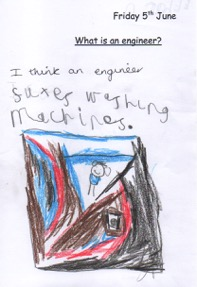 Friday 5th June
What is an engineer?
I think an engineer
suxes washing
machines.